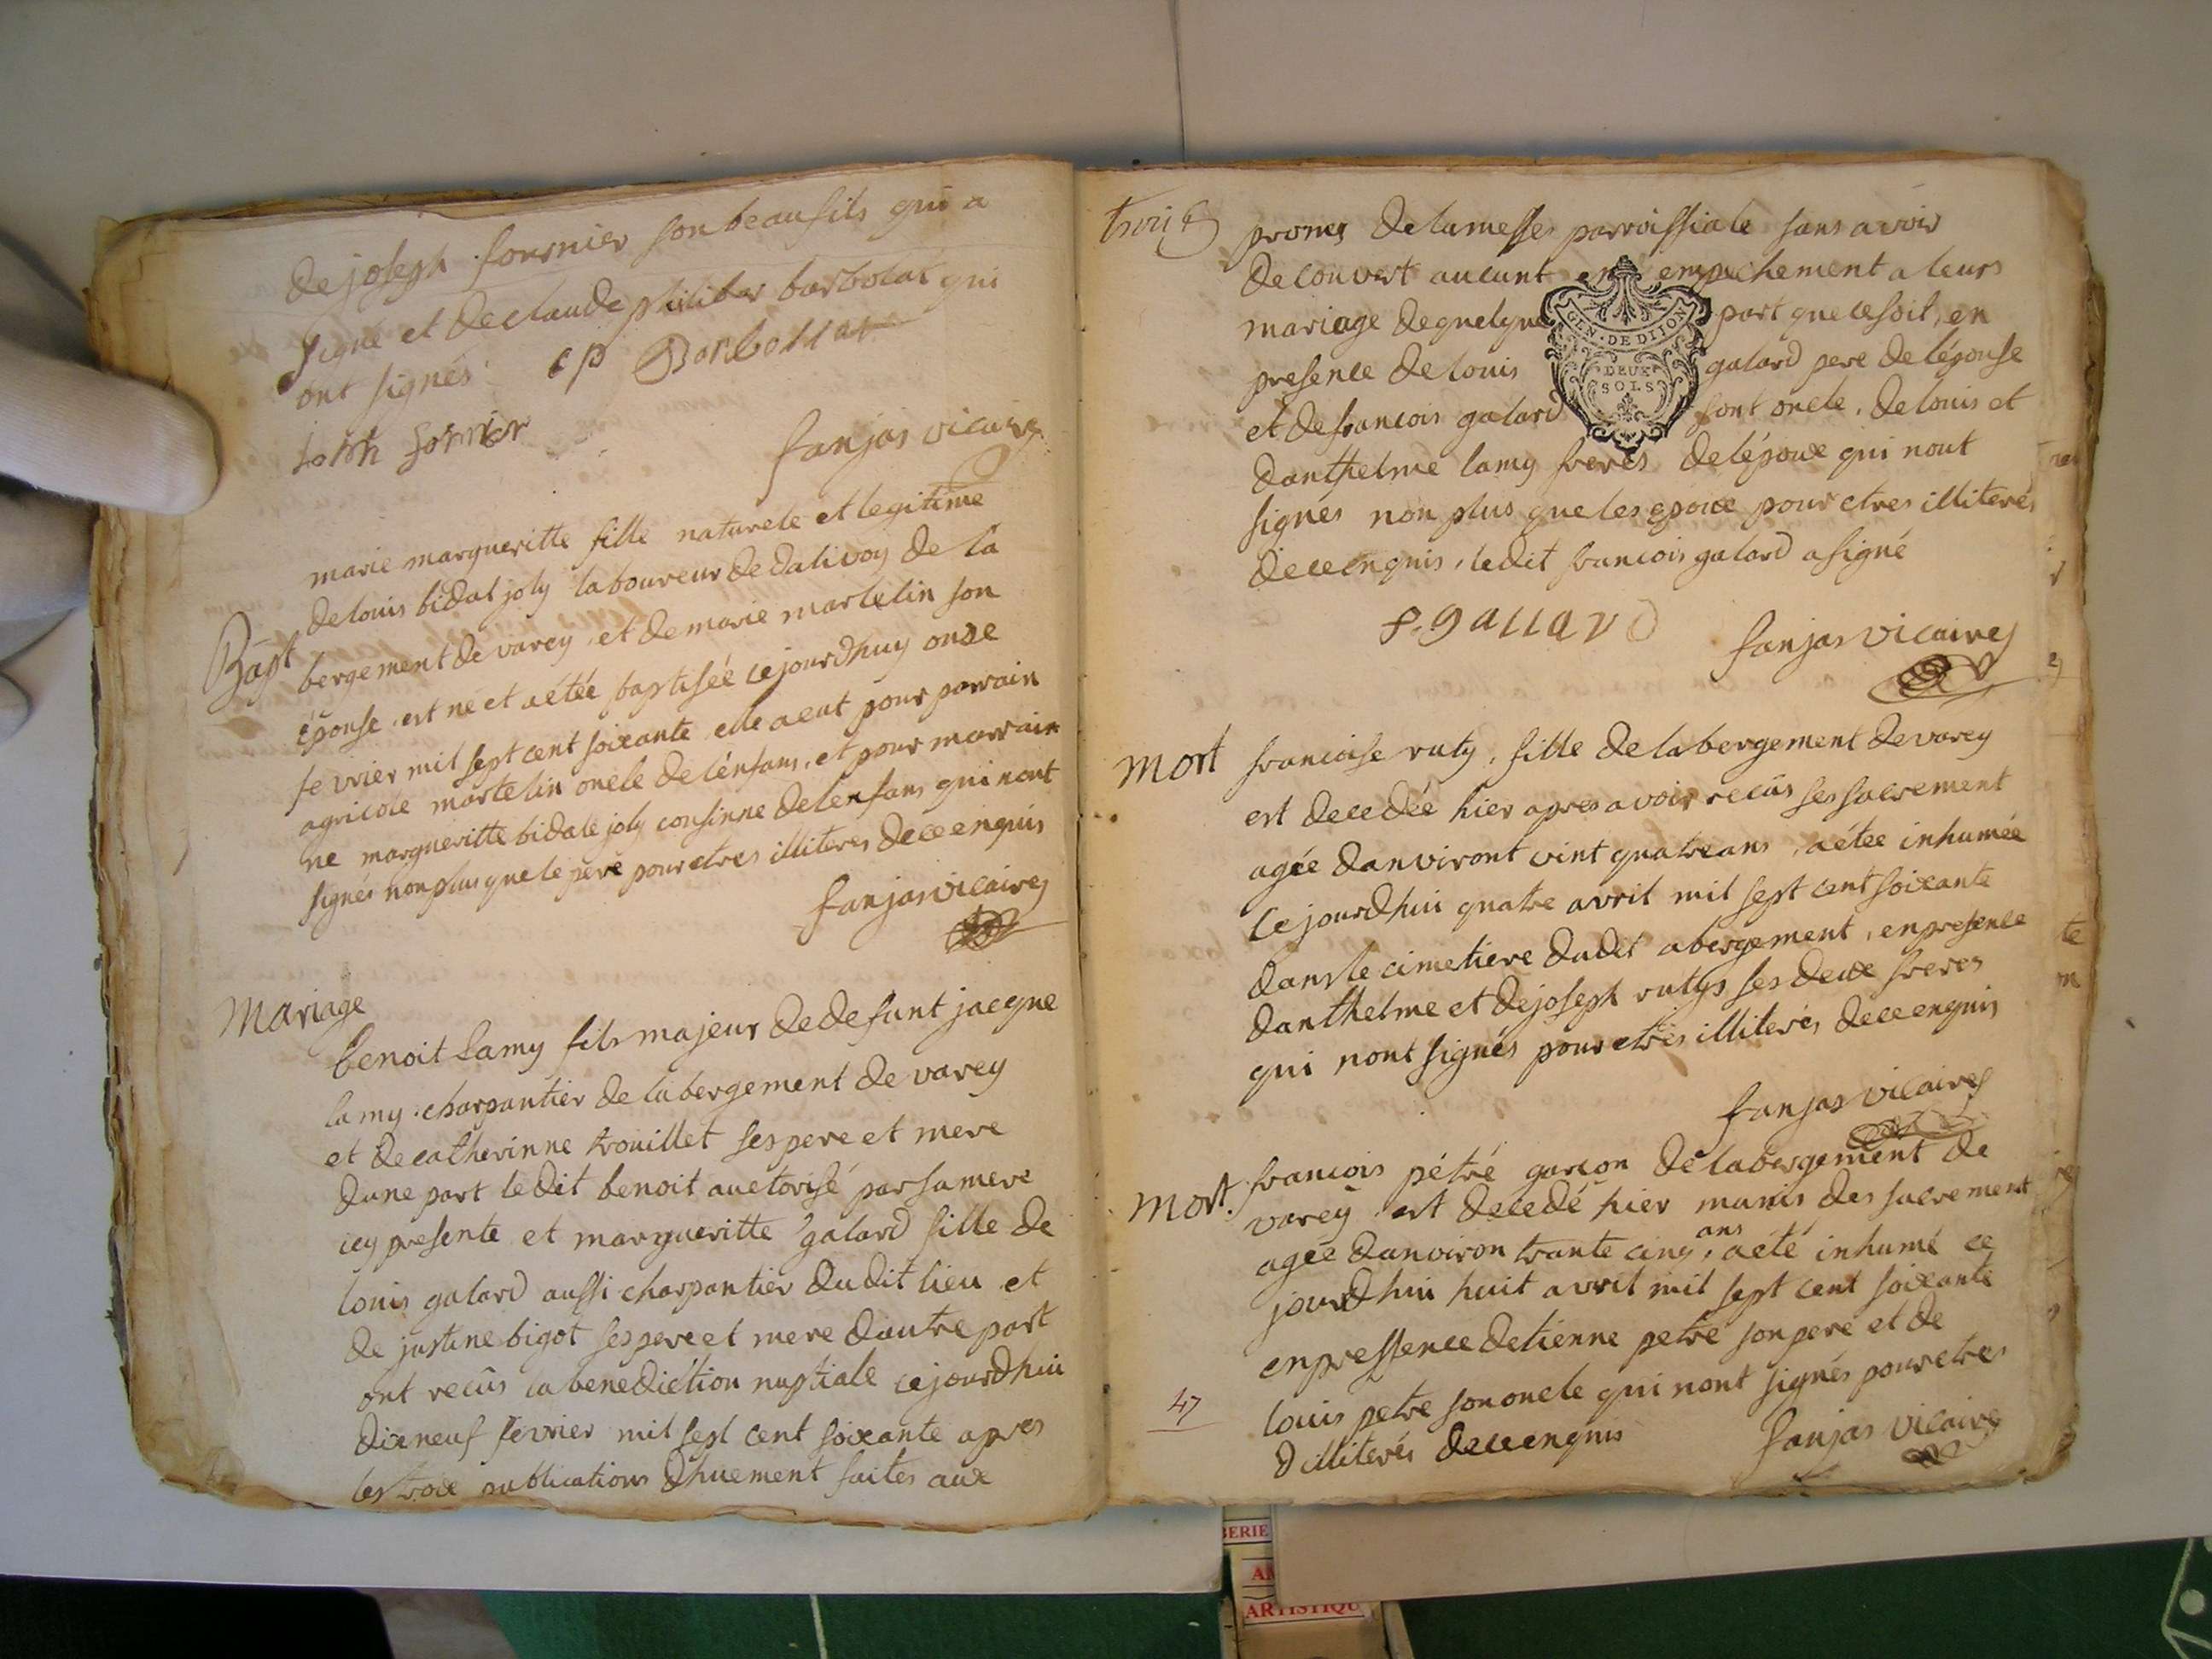 de joseph fournier son beaufils qui a
signé et de claude philiber barbolat qui
ont signés cp Barbollat
fornier
fanjas vicaire
marie margueritte fille naturele et legitime
de louis bidat joly laboureur de dalivoy de la
Bapt
bergement de varey, et de marie martelin son
épouse, est né et aétée baptisée cejourdhuy onze
fevrier mil sept cent soixante elle a eut pour parrain
agricole martelin oncle de lénfans, et pour marrain
ne margueritte bidale joly cousinne delenfans qui nont
signés non plus que le pere pour etres illiteres de ce enquis
fanjas vicaires
Mariage
benoit Lamy fils majeur de defunt jacque
lamy charpantier de labergement de varey
et de catherinne trouillet ses pere et mere
dune part le dit benoit auctorisé par sa mere
icy presente et margueritte galard fille de
louis galard aussi charpantier dudit lieu et
de justine bigot ses pere et mere dautre part
ont recûs la benediction nuptiale cejourdhui
dixneuf fevrier mil sept cent soixante apres
les troix publications dhuement faites aux
trois
prones de la messe parroissiale sans avoir
decouvert aucunt en empechement a leurs
mariage de quelque part que ce soit, en
presence de louis galard pere de lépouse
et de francois galard sont oncle, de louis et
danthelme lamy freres de lépoux qui nont
signés non plus que les epoux pour etres illiterés
de ce enquis, ledit francois galard a signé
GEN. DE DIJON
DEUX
SOLS
f. gallard
fanjas vicaires
mort
francoise ruty, fille de labergement de varey
est decedée hier apres avoir recûs ses sacrement
agée danviront vint quatre ans, aétée inhumée
cejourdhui quatre avril mil sept cent soixante
dans le cimetiere dudit abergement, en presence
danthelme et de joseph rutys ses deux freres
qui nont signés pour etres illiterés de ce enquis
fanjas vicaires
mort.
francois pétré garcon de labergement de
varey est decedé hier munis des sacrement
agée danviron trante cinq ans, aété inhumé ce
jourdhui huit avril mil sept cent soixante
en pressence detienne petre son pere et de
47
louis petre son oncle qui nont signés pour etres
dilliterés de ce enquis
fanjas vicaires
BERIE
ARTISTIQU